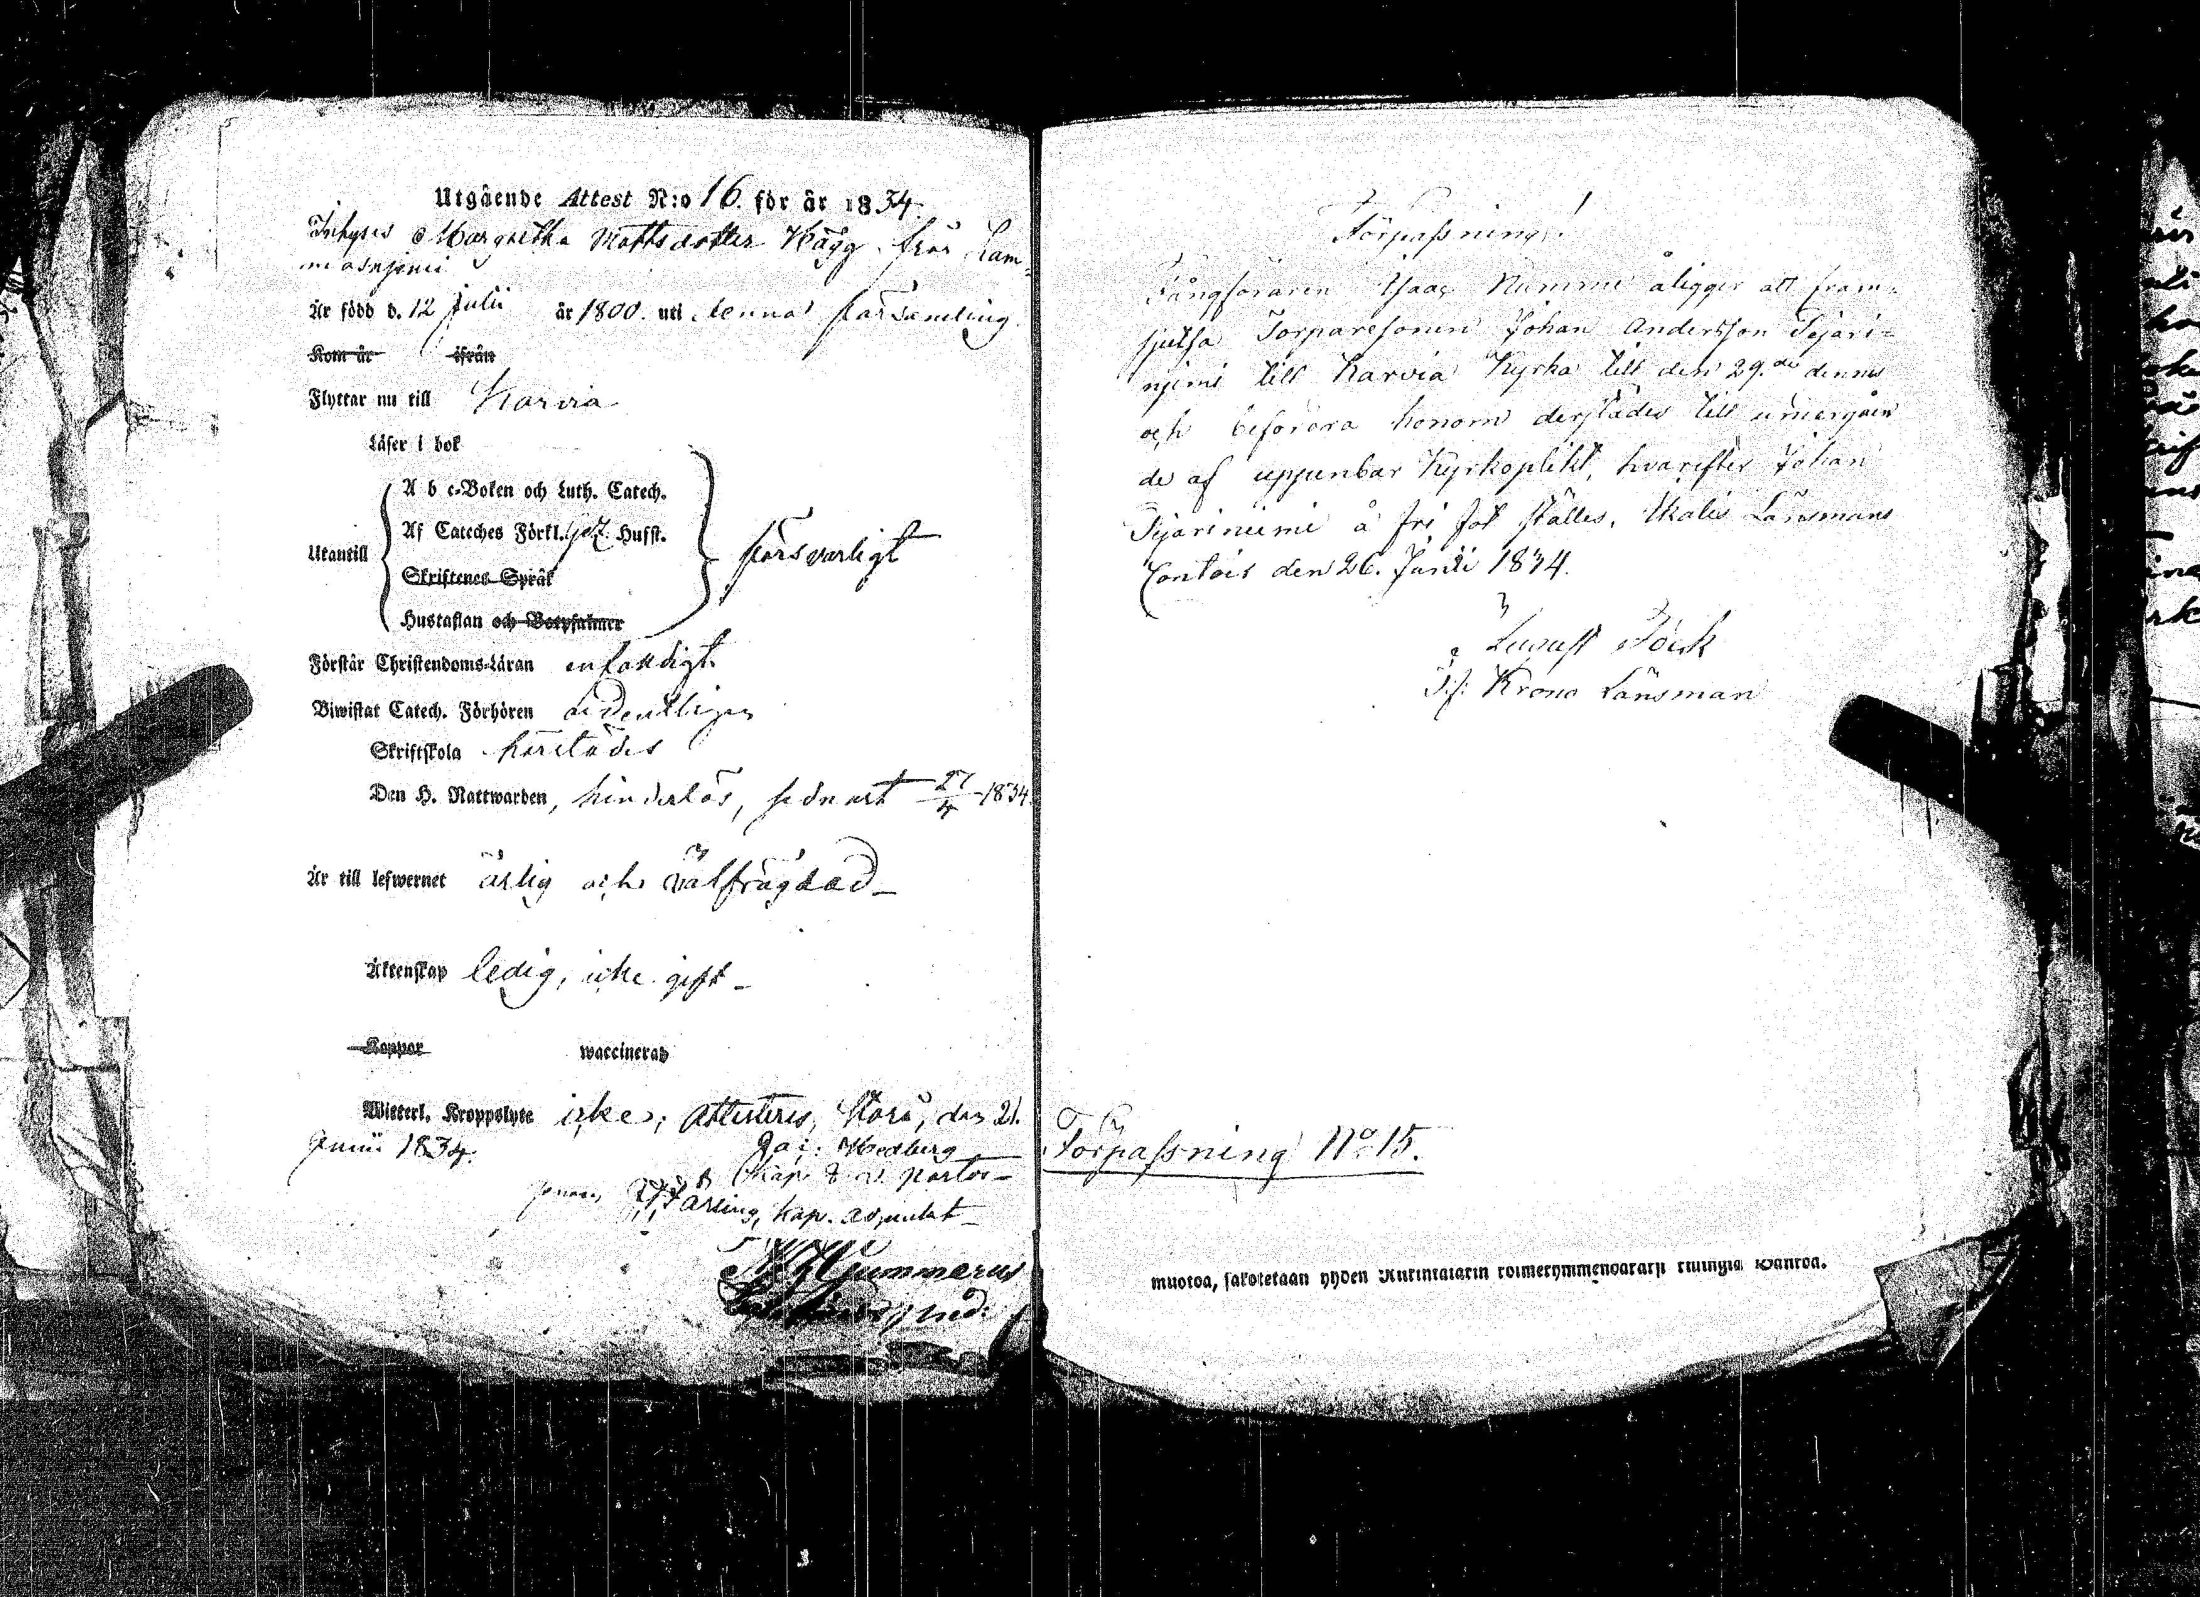 Utgående Attest N:o 16. för år 1834.
Inhyses Margretha Mattsdotter Hägg från Lam-
masnjemi
Är född d. 12 Julii år 1800. uti denna församling
Kom år ifrån
Flyttar nu till Karvia
Läser i bok
A b c-Boken och Luth. Catech.
Af Cateches Förkl. Husst.
Utantill försvarligt
Skriftenes Språk
Hustaflan och Botpsalmer
Förstår Christendoms-Läran enfaldigt
Biwistat Catech. Förhören ordentligen
Skriftskola härstädes
Den H. Nattwarden, hinderlös, sednast 27/4 1834.
Är till lefwernet ärlig och välfrägdad
Äktenskap ledig, icke gift
Koppor waccinerad
Witterl. Kroppslyte icke; Attesteras, Storå, den 21.
Junii 1834. Hedberg
Kap. & v. Pastor
Kap. adjunkt
Förpassning!
Fångföraren Isaac Nummi åligger att fram-
skjutsa Torparesonen Johan Andersson Pejari-
njemi till Karvia Kyrka till den 29.de dennes
och befordra honom derstädes till undergåen
de af uppenbar Kyrkoplikt, hvarefter Johan
Pejariniemi å fri fot ställes. Ikalis Länsmans
Contoir den 26. Junii 1834.
T.f. Krono Länsman
Förpassning No 15.
muotoa, sakotetaan yhden